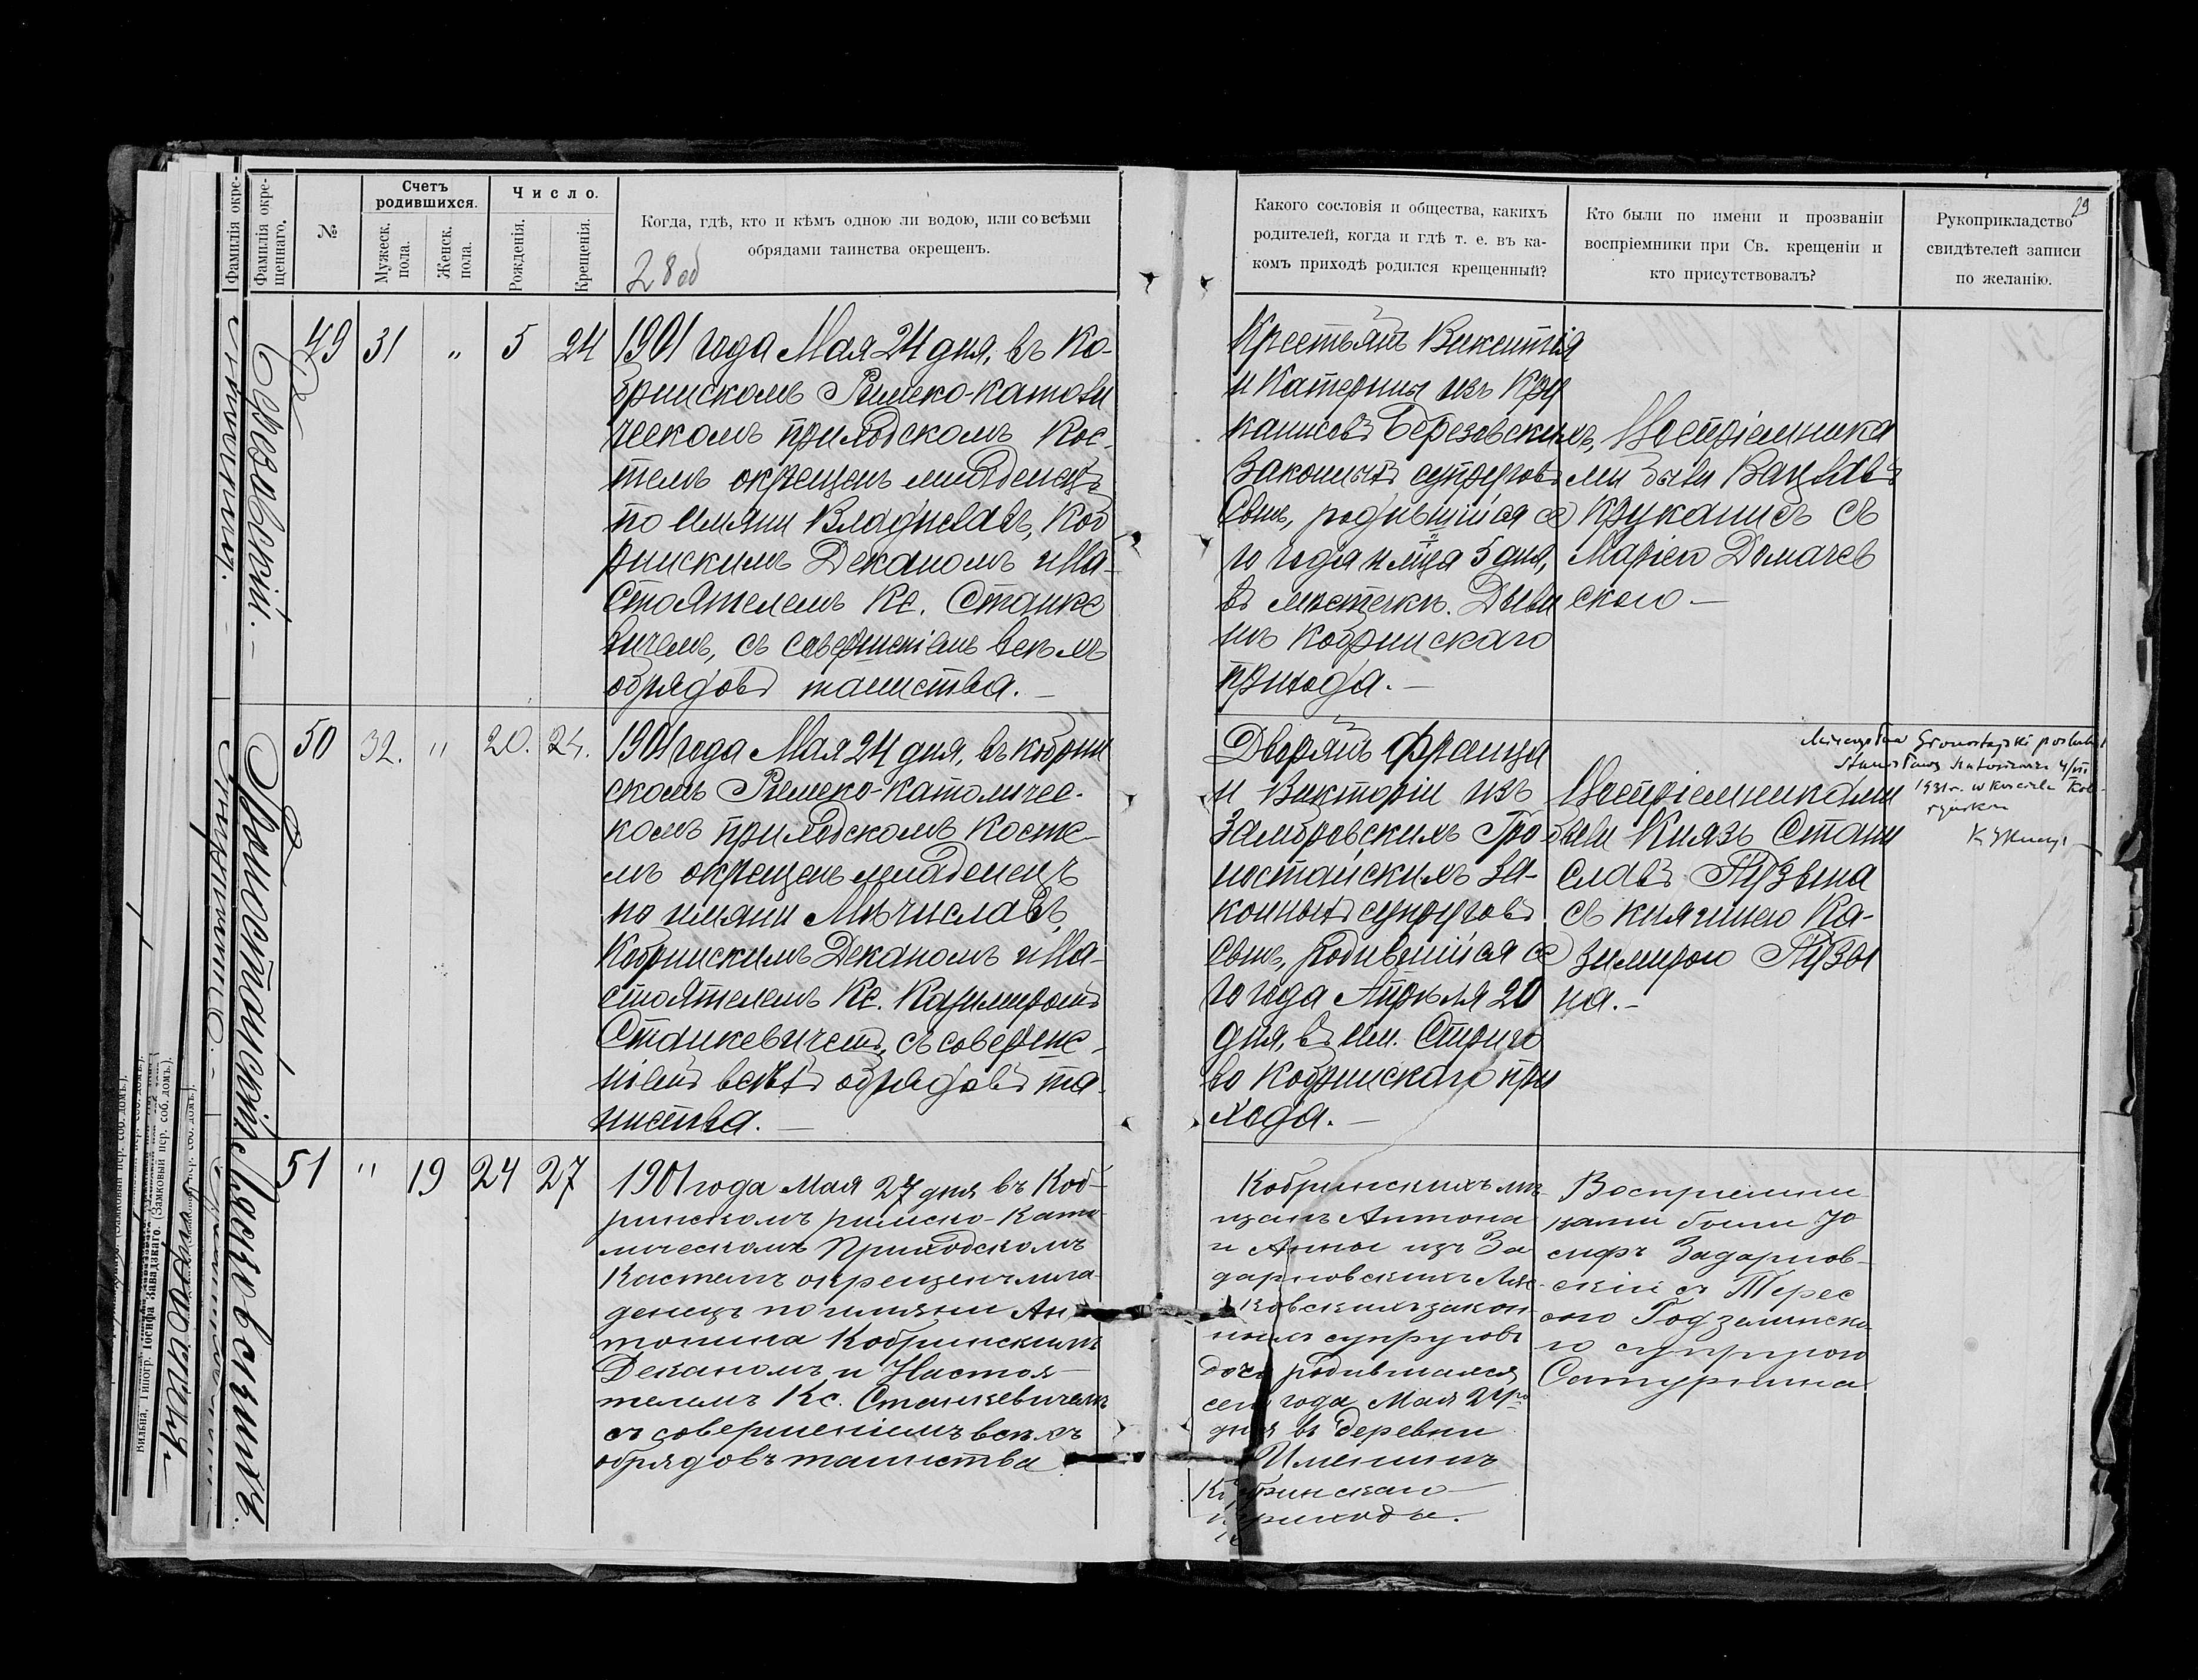 Фамилія окре-
щеннаго.
№
Счетъ
родившихся.
Мужеск.
пола.
Женск.
пола.
Число.
Рожденія.
Крещенія.
Когда, гдѣ, кто и кѣмъ одною ли водою, или со всѣми
обрядами таинства окрещенъ.
28 об
Какого сословія и общества, какихъ
родителей, когда и гдѣ т. е. въ ка-
комъ приходѣ родился крещенный?
Кто были по имени и прозваніи
воспріемники при Св. крещеніи и
кто присутствовалъ?
Рукоприкладство
свидѣтелей записи
по желанію.
29
Березовскій. —
49 31 " 5 24
1901 года Мая 24 дня, въ Ко-
бринскомъ Римско-Католи
ческомъ приходскомъ Кос-
телѣ окрещенъ младенецъ
по имяни Владиславъ, Коб
ринскимъ Деканомъ и На-
стоятелемъ Кс. Станке
вичемъ, съ совершеніемъ всѣхъ
обрядовъ таинства. —
Крестьянъ Викентія
и Катерины изъ Кру
каписовъ Березовскихъ,
Законныхъ супруговъ
Сынъ, родившійся се
го года и мца 5 дня,
въ мѣстечкѣ. Диви
нѣ Кобринскаго
прихода. —
Воспріемника
ми были Вацлавъ
Круканисъ съ
Маріею Домачев
скою —
Гроностайскій
50 32. " 20. 24.
1901 года Мая 24 дня, въ Кобрин
скомъ Римско-Католичес-
комъ приходскомъ Косте-
лѣ окрещенъ младенецъ
по имяни Мѣчиславъ,
Кобринскимъ Деканомъ и На-
стоятелемъ Кс. Казимиромъ
Станкевичемъ, съ соверше-
ніемъ всѣхъ обрядовъ та-
инства. —
Дворянъ Франца
и Викторіи изъ
Замбровскихъ Гро
ностайскихъ за-
конныхъ супруговъ
Сынъ, родившійся се
го года Апрѣля 20
дня, въ им. Стриго
во Кобринскаго при
хода. —
Воспріемниками
были Князь Стани
славъ Пузына
съ княгинею Ка-
зимирою Пузы
на. —
Mieczysław Gronostajski poślubił
1931 r. w Kościele Kob-
ryńskim
Лясковскихъ.
51 " 19 24 27
1901 года Мая 27 дня въ Коб-
ринскомъ римско-Като-
лическомъ Приходскомъ
Костелѣ окрещенъ мла-
денецъ по имяни Ан-
тонина Кобринскимъ
Деканомъ и Настоя-
телемъ Кс. Станкевичемъ
съ совершеніемъ всѣхъ
обрядовъ таинства.
Кобринскихъ мѣ-
щанъ Антона
и Анны изъ За
дарновскихъ Ляс-
ковскихъ закон-
ныхъ супруговъ
дочь родившаяся
сего года Мая 24го
дня въ деревни
Именинъ
Кобринскаго
прихода.
Воспріемни
ками были Іо
сифъ Задарнов-
скій съ Терес
ою Годзелинско
ю супругою
Сатурнина
Вильна, Типогр. Іосифа Завадзкаго. (Замковый пер. соб. домъ.).